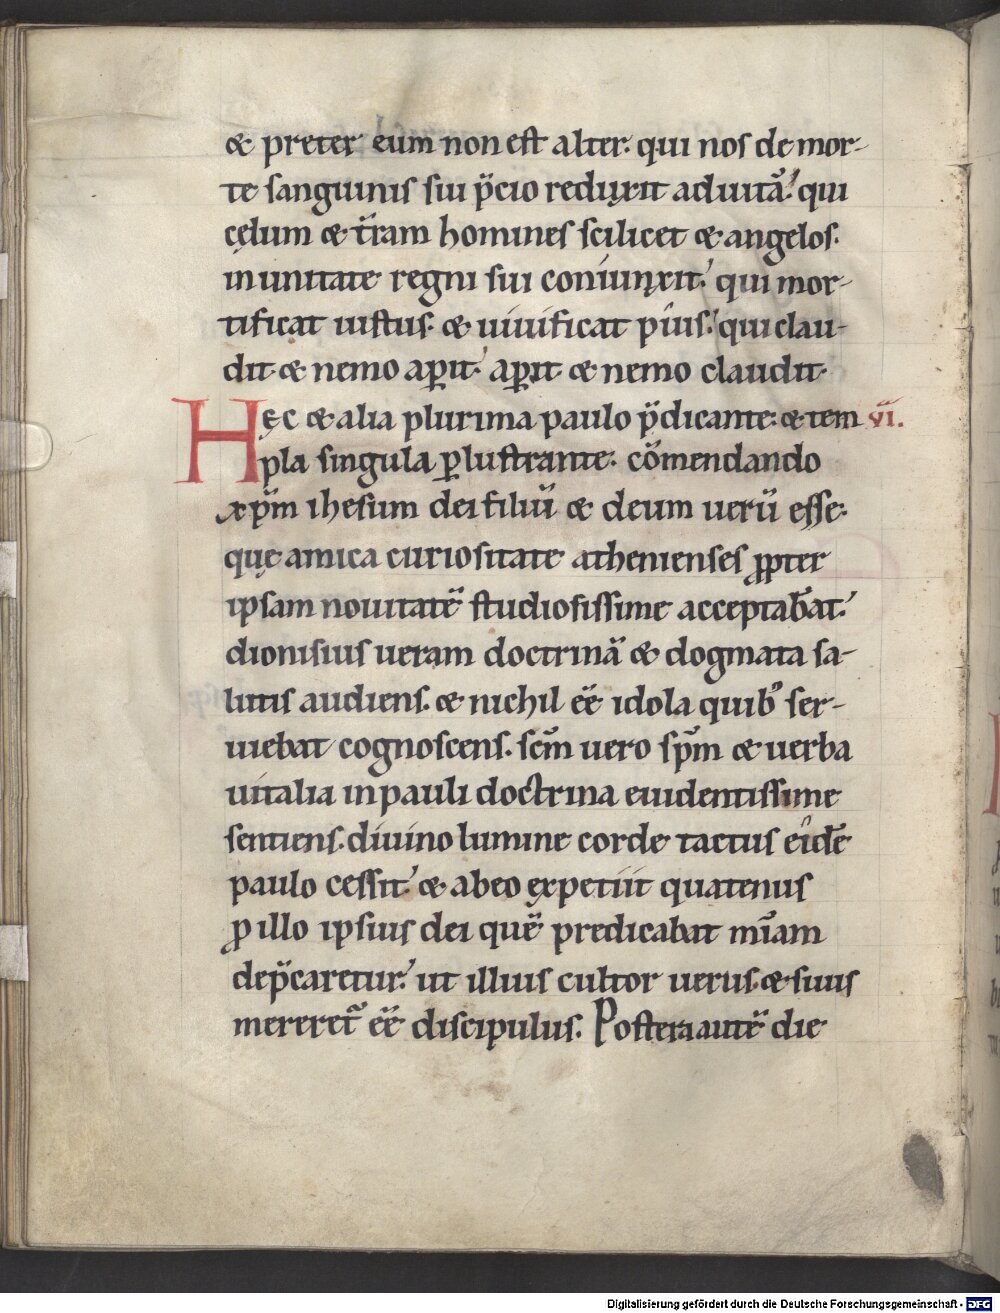 & preter eum non est alter. qui nos de mor-
te sanguinis sui p̄cio reduxit ad uitā. qui
cęlum & t̄ram homines scilicet & angelos.
in unitate regni sui coniunxit. qui mor-
tificat iustus. & uiuificat pius. qui clau-
dit & nemo aꝑit. aꝑit & nemo claudit.
Hęc & alia plurima paulo p̄dicante. & tem VI.
pla singula ꝑlustrante. cōmendando
xp̄m ihesum dei filiū & deum uerū esse.
quę amica curiositate athenienses ꝓpter
ipsam nouitatē studiosissime acceptab̄at.
dionisius ueram doctrinā & dogmata sa-
lutis audiens. & nichil eē idola quib᾽ ser-
uiebat cognoscens. sc̄m uero sp̄m & uerba
uitalia in pauli doctrina euidentissime
sentiens. diuino lumine corde tactus eidē
paulo cessit. & ab eo expetiit quatenus
ꝓ illo ipsius dei quē predicabat mīam
dep̄caretur. ut illius cultor uerus. & suus
mereret᷑ eē discipulus. Postera autē die
Digitalisierung gefördert durch die Deutsche Forschungsgemeinschaft - DFG